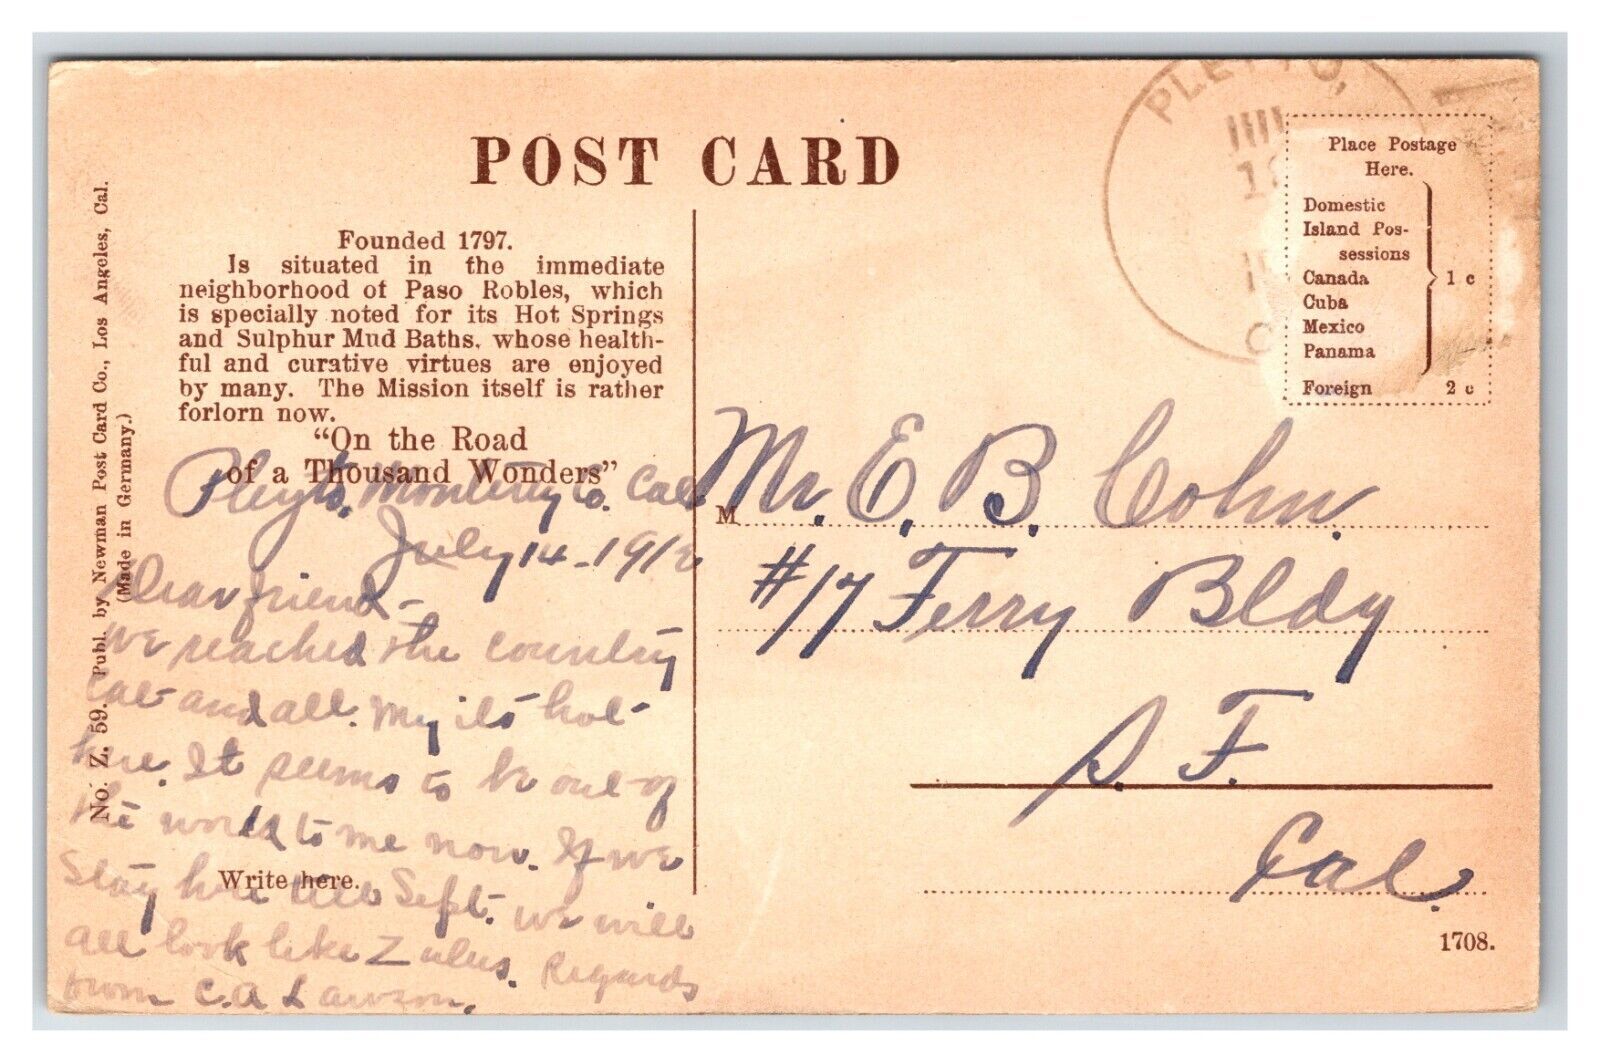 POST CARD
PLEYTO,
Place Postage
Here.
Domestic
Island Pos-
sessions
Canada
Cuba
Mexico
Panama
1 c
Foreign 2 c
Founded 1797.
Is situated in the immediate
neighborhood of Paso Robles, which
is specially noted for its Hot Springs
and Sulphur Mud Baths, whose health-
ful and curative virtues are enjoyed
by many. The Mission itself is rather
forlorn now.
"On the Road
of a Thousand Wonders"
No. Z. 59. Publ. by Newman Post Card Co., Los Angeles, Cal.
(Made in Germany.)
Pleyto, Monterey Co. Cal
July 14 - 1912
Dear friend -
We reached the country
Cal and all. My its hot
here. It seems to be out of
the world to me now. If we
Stay here till Sept. we will
all look like Zulus. Regards
from C. A. Lawson.
Write here.
M
Mr. E. B. Cohn.
#17 Ferry Bldy
S. F.
Cal.
1708.